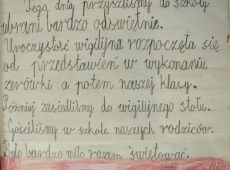 Tego dnia przyszliśmy do szkoły
ubrani bardzo odświętnie.
Uroczystość wigilijna rozpoczęła się
od przedstawień w wykonaniu
zerówki a potem naszej klasy.
Później zasiedliśmy do wigilijnego stołu.
Gościliśmy w szkole naszych rodziców.
Było bardzo miło razem świętować.